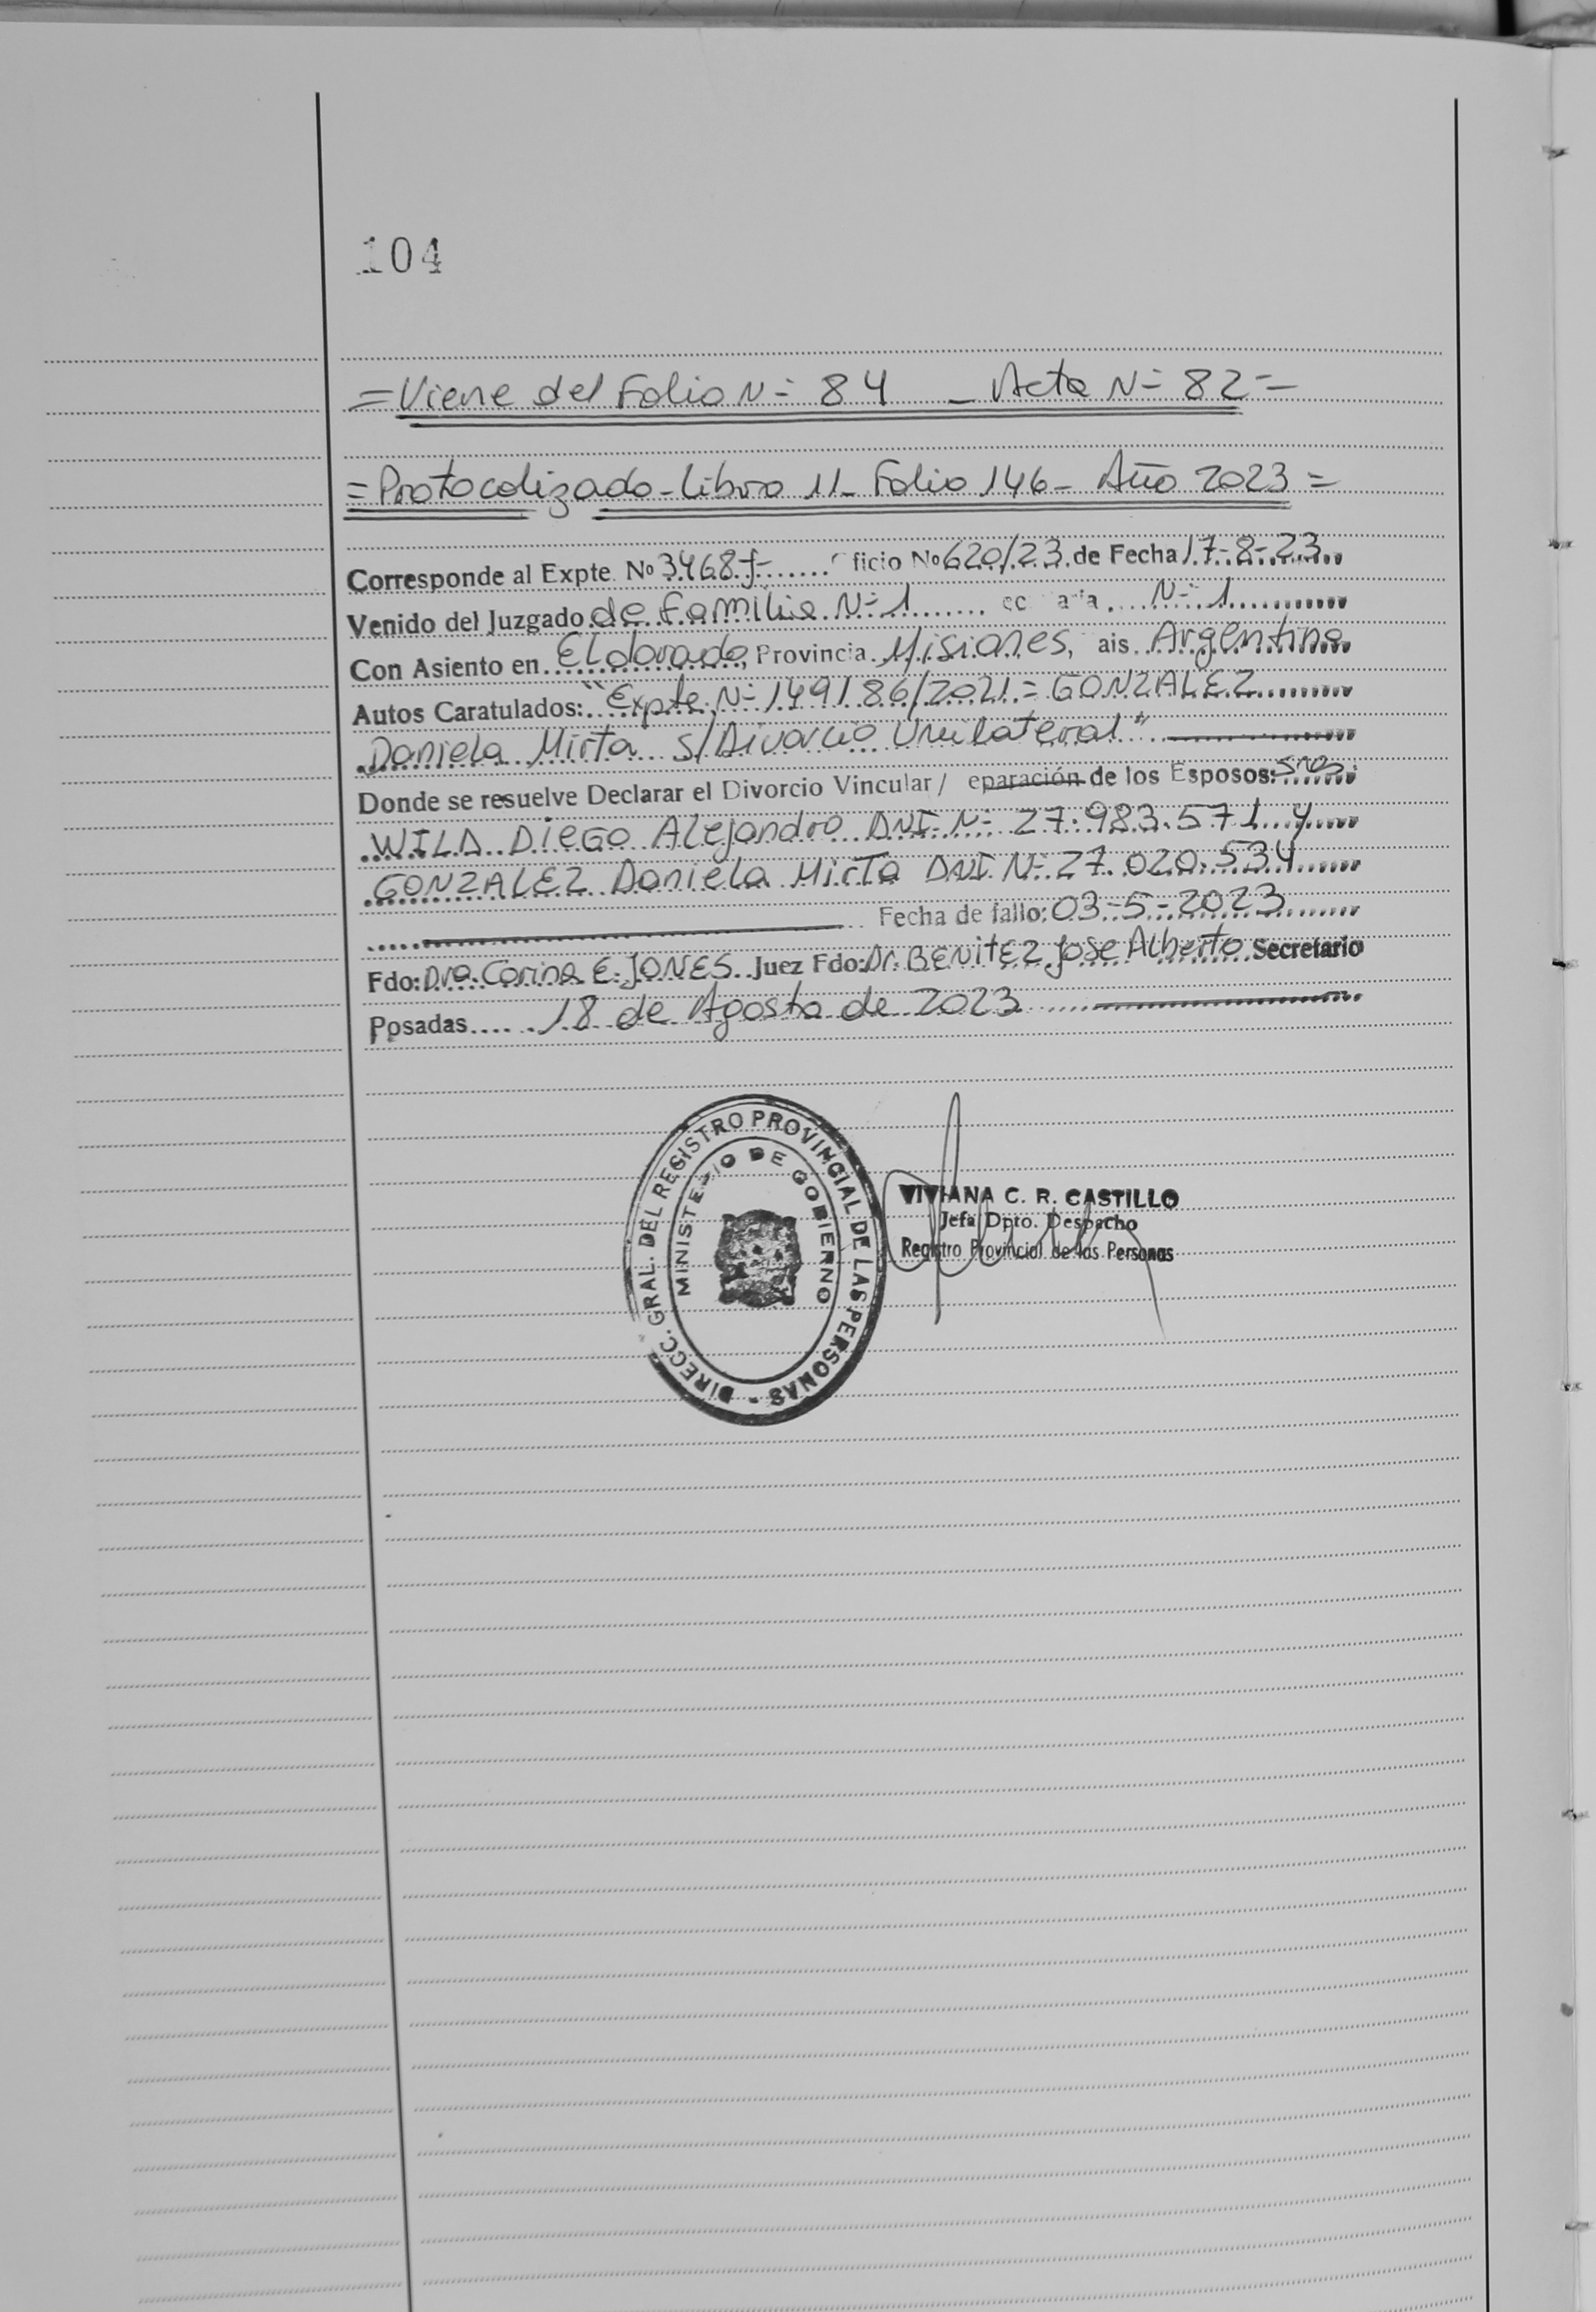 104
= Viene del Folio N= 84 _ Acta N= 82 =
= Protocolizado - Libro 11 - Folio 146 - Año 2023 =
Corresponde al Expte. Nº 3468-f- ficio Nº 620/23 de Fecha 17-8-23
Venido del Juzgado de Familia N= 1 N= 1
Con Asiento en Eldorado, Provincia Misiones, ais Argentina
Autos Caratulados: "Expte N= 149186/2021 = GONZALEZ
Daniela Mirta s/Divorcio Unilateral"
Donde se resuelve Declarar el Divorcio Vincular / eparación de los Esposos: Sres.
WILD Diego Alejandro DNI N= 27.983.571 y
GONZALEZ Daniela Mirta DNI N= 27.020.534
Fecha de fallo: 03-5-2023
Fdo: Dra. Corina E. JONES Juez Fdo: Dr. BENITEZ Jose Alberto Secretario
Posadas 18 de Agosto de 2023
DIRECC. GRAL. DEL REGISTRO PROVINCIAL DE LAS PERSONAS -
MINISTERIO DE GOBIERNO
VIVIANA C. R. CASTILLO
Jefa Dpto. Despacho
Registro Provincial de las Personas